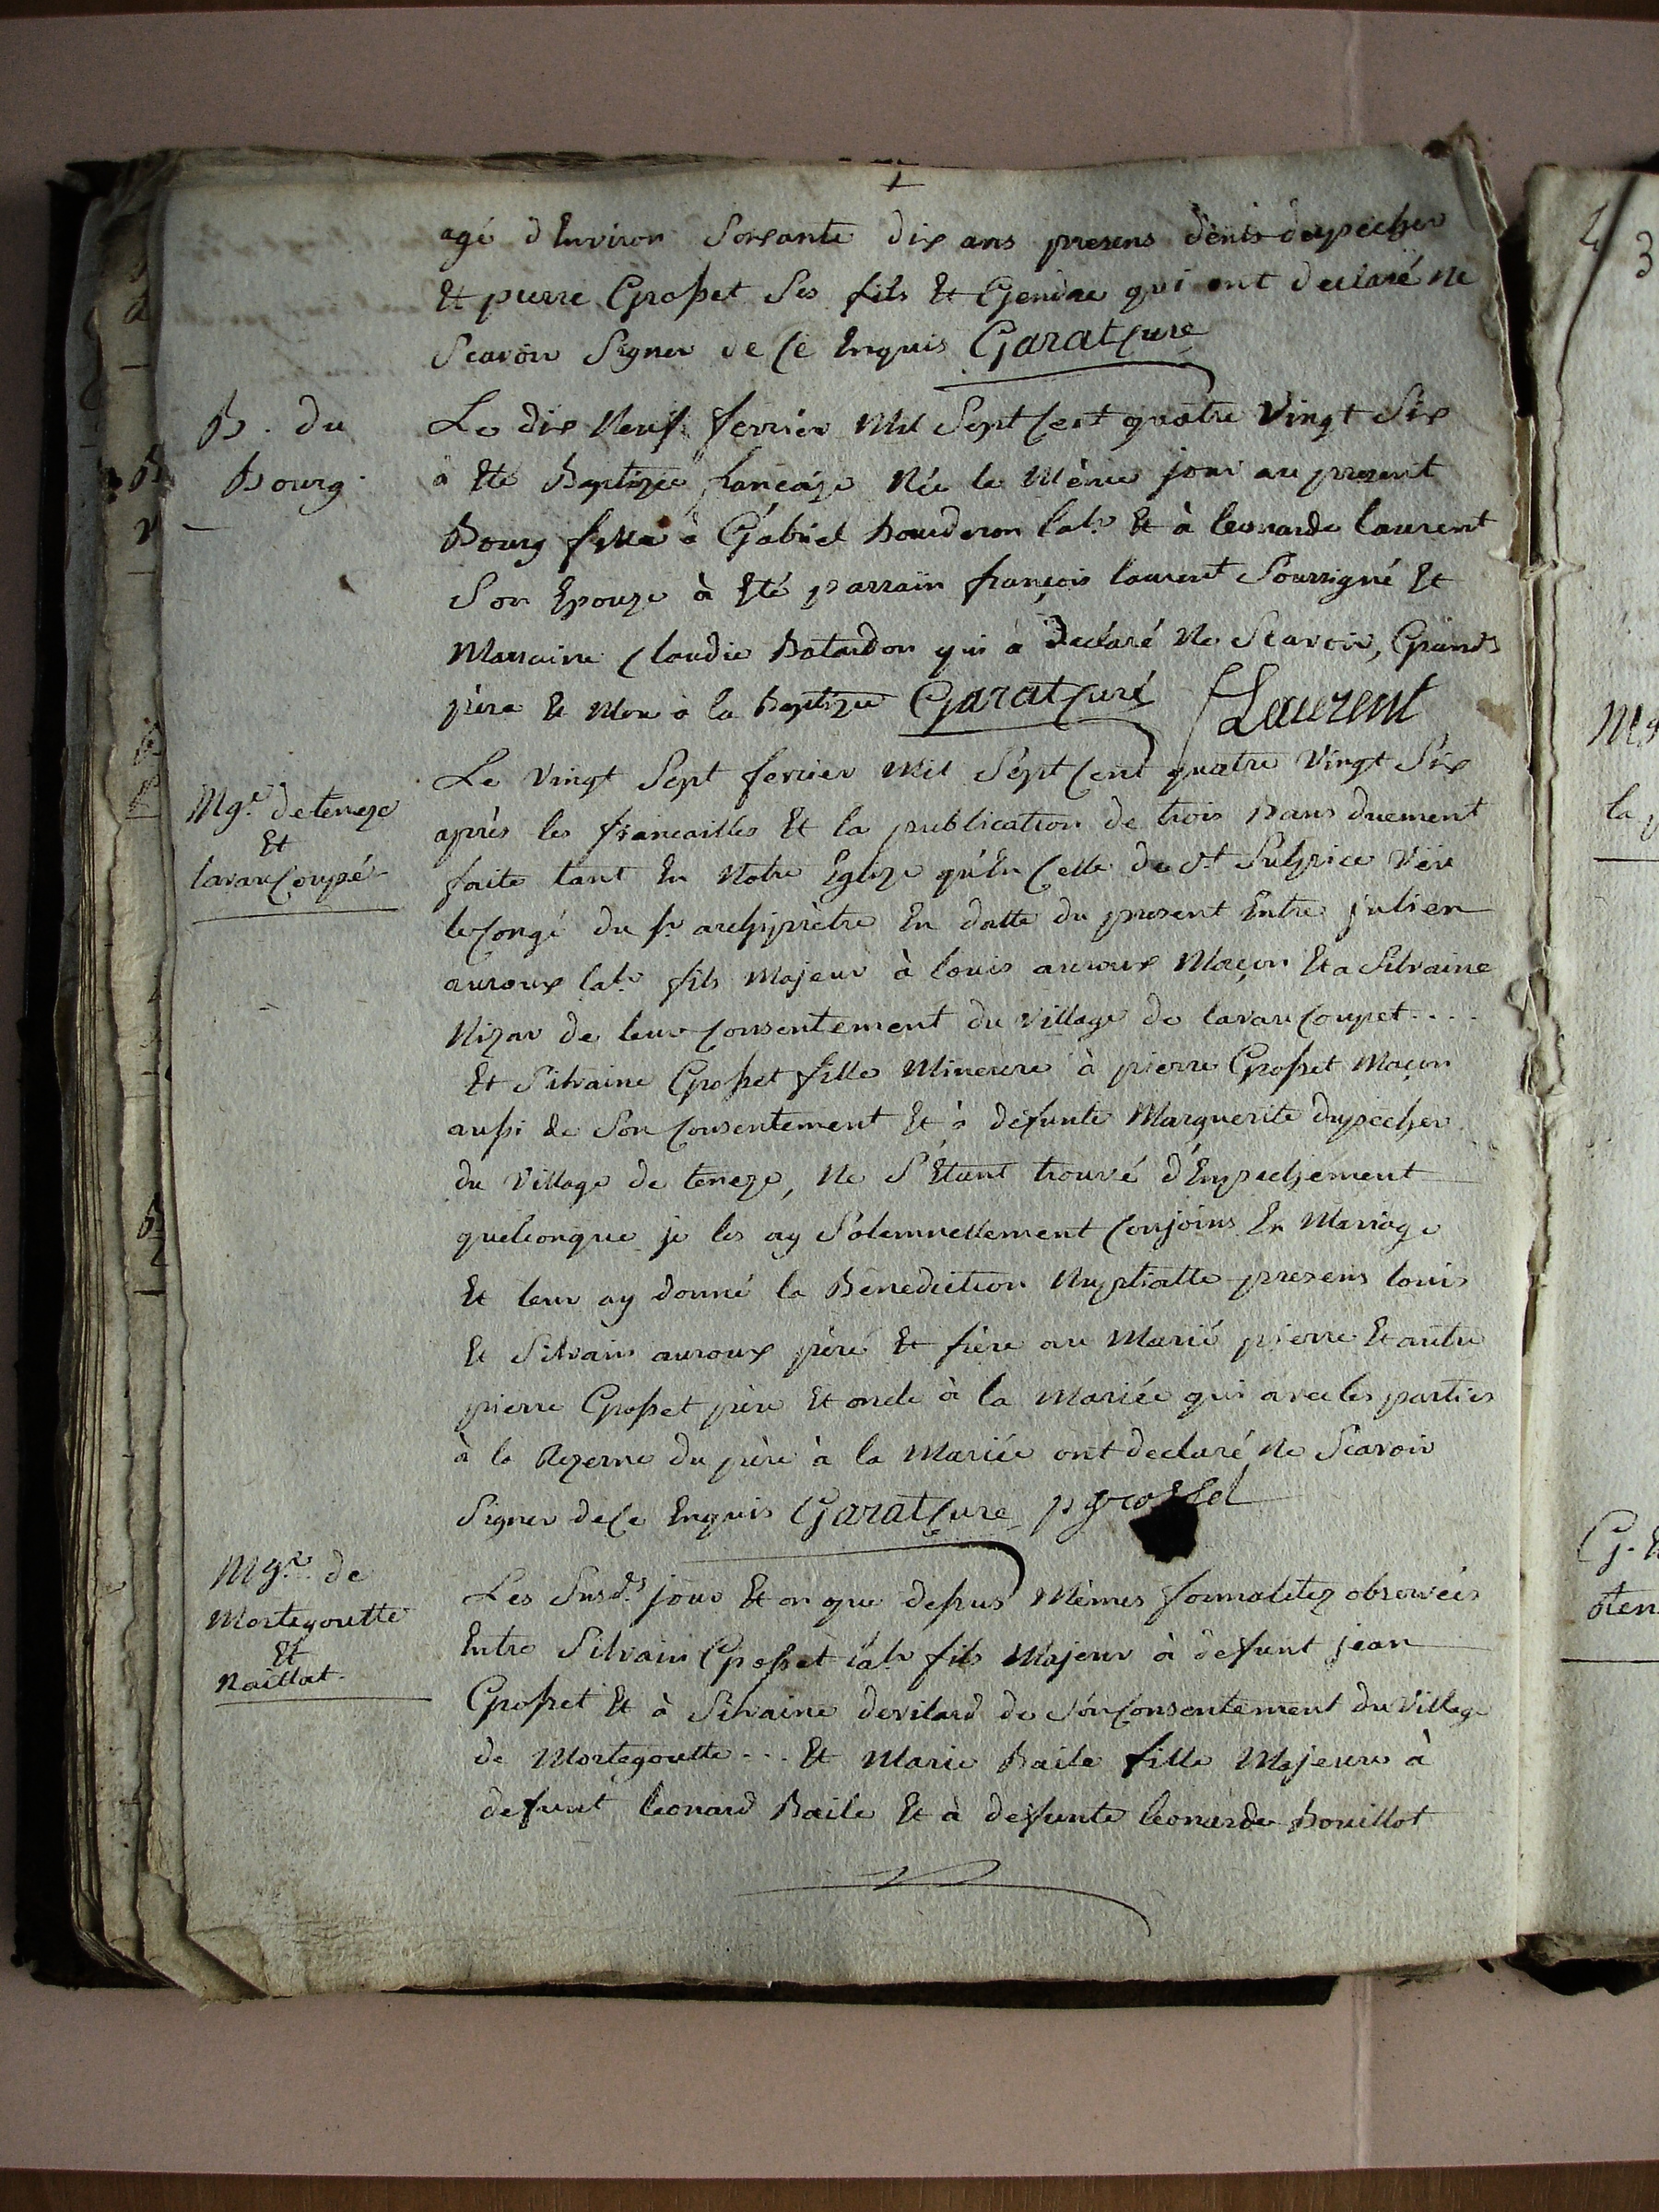 agé d'Environ Soixante dix ans presens dénis dupecher
Et pierre Grosset Ses fils Et Gendre qui ont declaré ne
Scavoir Signer de Ce Enquis Garat Curé
B. du
Bourg
Le dix Neuf fevrier Mil Sept Cent quatre Vingt Six
à Eté Baptizée françoize Née le Même jour au present
Bourg fille à Gabriel Bouderon labr Et à leonarde laurent
Son Epouze à Eté parrain françois laurent Soussigné Et
Marraine Claudie Batardon qui à Declaré Ne Scavoir, Grands
père Et Mere à la Baptizée Garat Curé Laurent
Mge. de teneze
Et
lavau Coupé
Le Vingt Sept fevrier Mil Sept Cent quatre Vingt Six
après les fiancailles Et la publication de trois Bans duement
faite tant En Notre Eglize qu'En Celle de St Sulpice Vëu
le Congé du Sr archiprètre En datte du present Entre julien
auroux labr fils Majeur à louis auroux Maçon Et a Silvaine
Nizar de leur Consentement du Village de lavau Coupet....
Et Silvaine Grosset fille Mineure à pierre Grosset Maçon
aussi de Son Consentement Et à defunte Marguerite dupecher
du Village de teneze, Ne S'Etant trouvé d'Empechement
quelconque je les ay Solemnellement Conjoins En Mariage
Et leur ay donné la Bénediction Nuptialle presens louis
Et Silvain auroux père Et frère au Marié pierre Et autre
pierre Grosset père Et oncle à la Mariée qui avec les parties
à la Rezerve du père à la Mariée ont declaré Ne Scavoir
Signer de Ce Enquis Garat Curé p grosset
Mge. de
Mortegoutte
Et
Naillat
Les Susds. jour Et an que dessus Mêmes formalitez observées
Entre Silvain Grosset labr fils Majeur à defunt jean
Grosset Et à Silvaine devilard de Son Consentement du Village
de Mortegoutte... Et Marie Baile fille Majeure à
defunt leonard Baile Et à defunte leonarde Bouillot